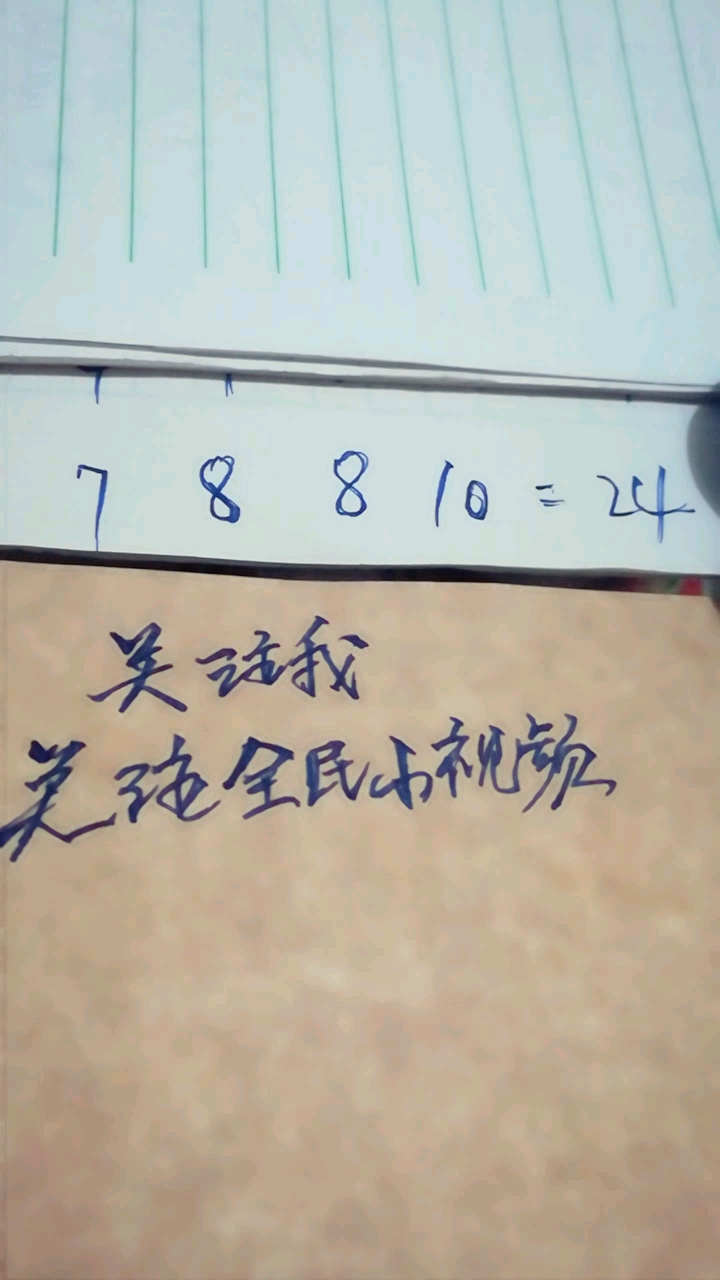 7 8 8 10 = 24
关注我
关注全民小视频